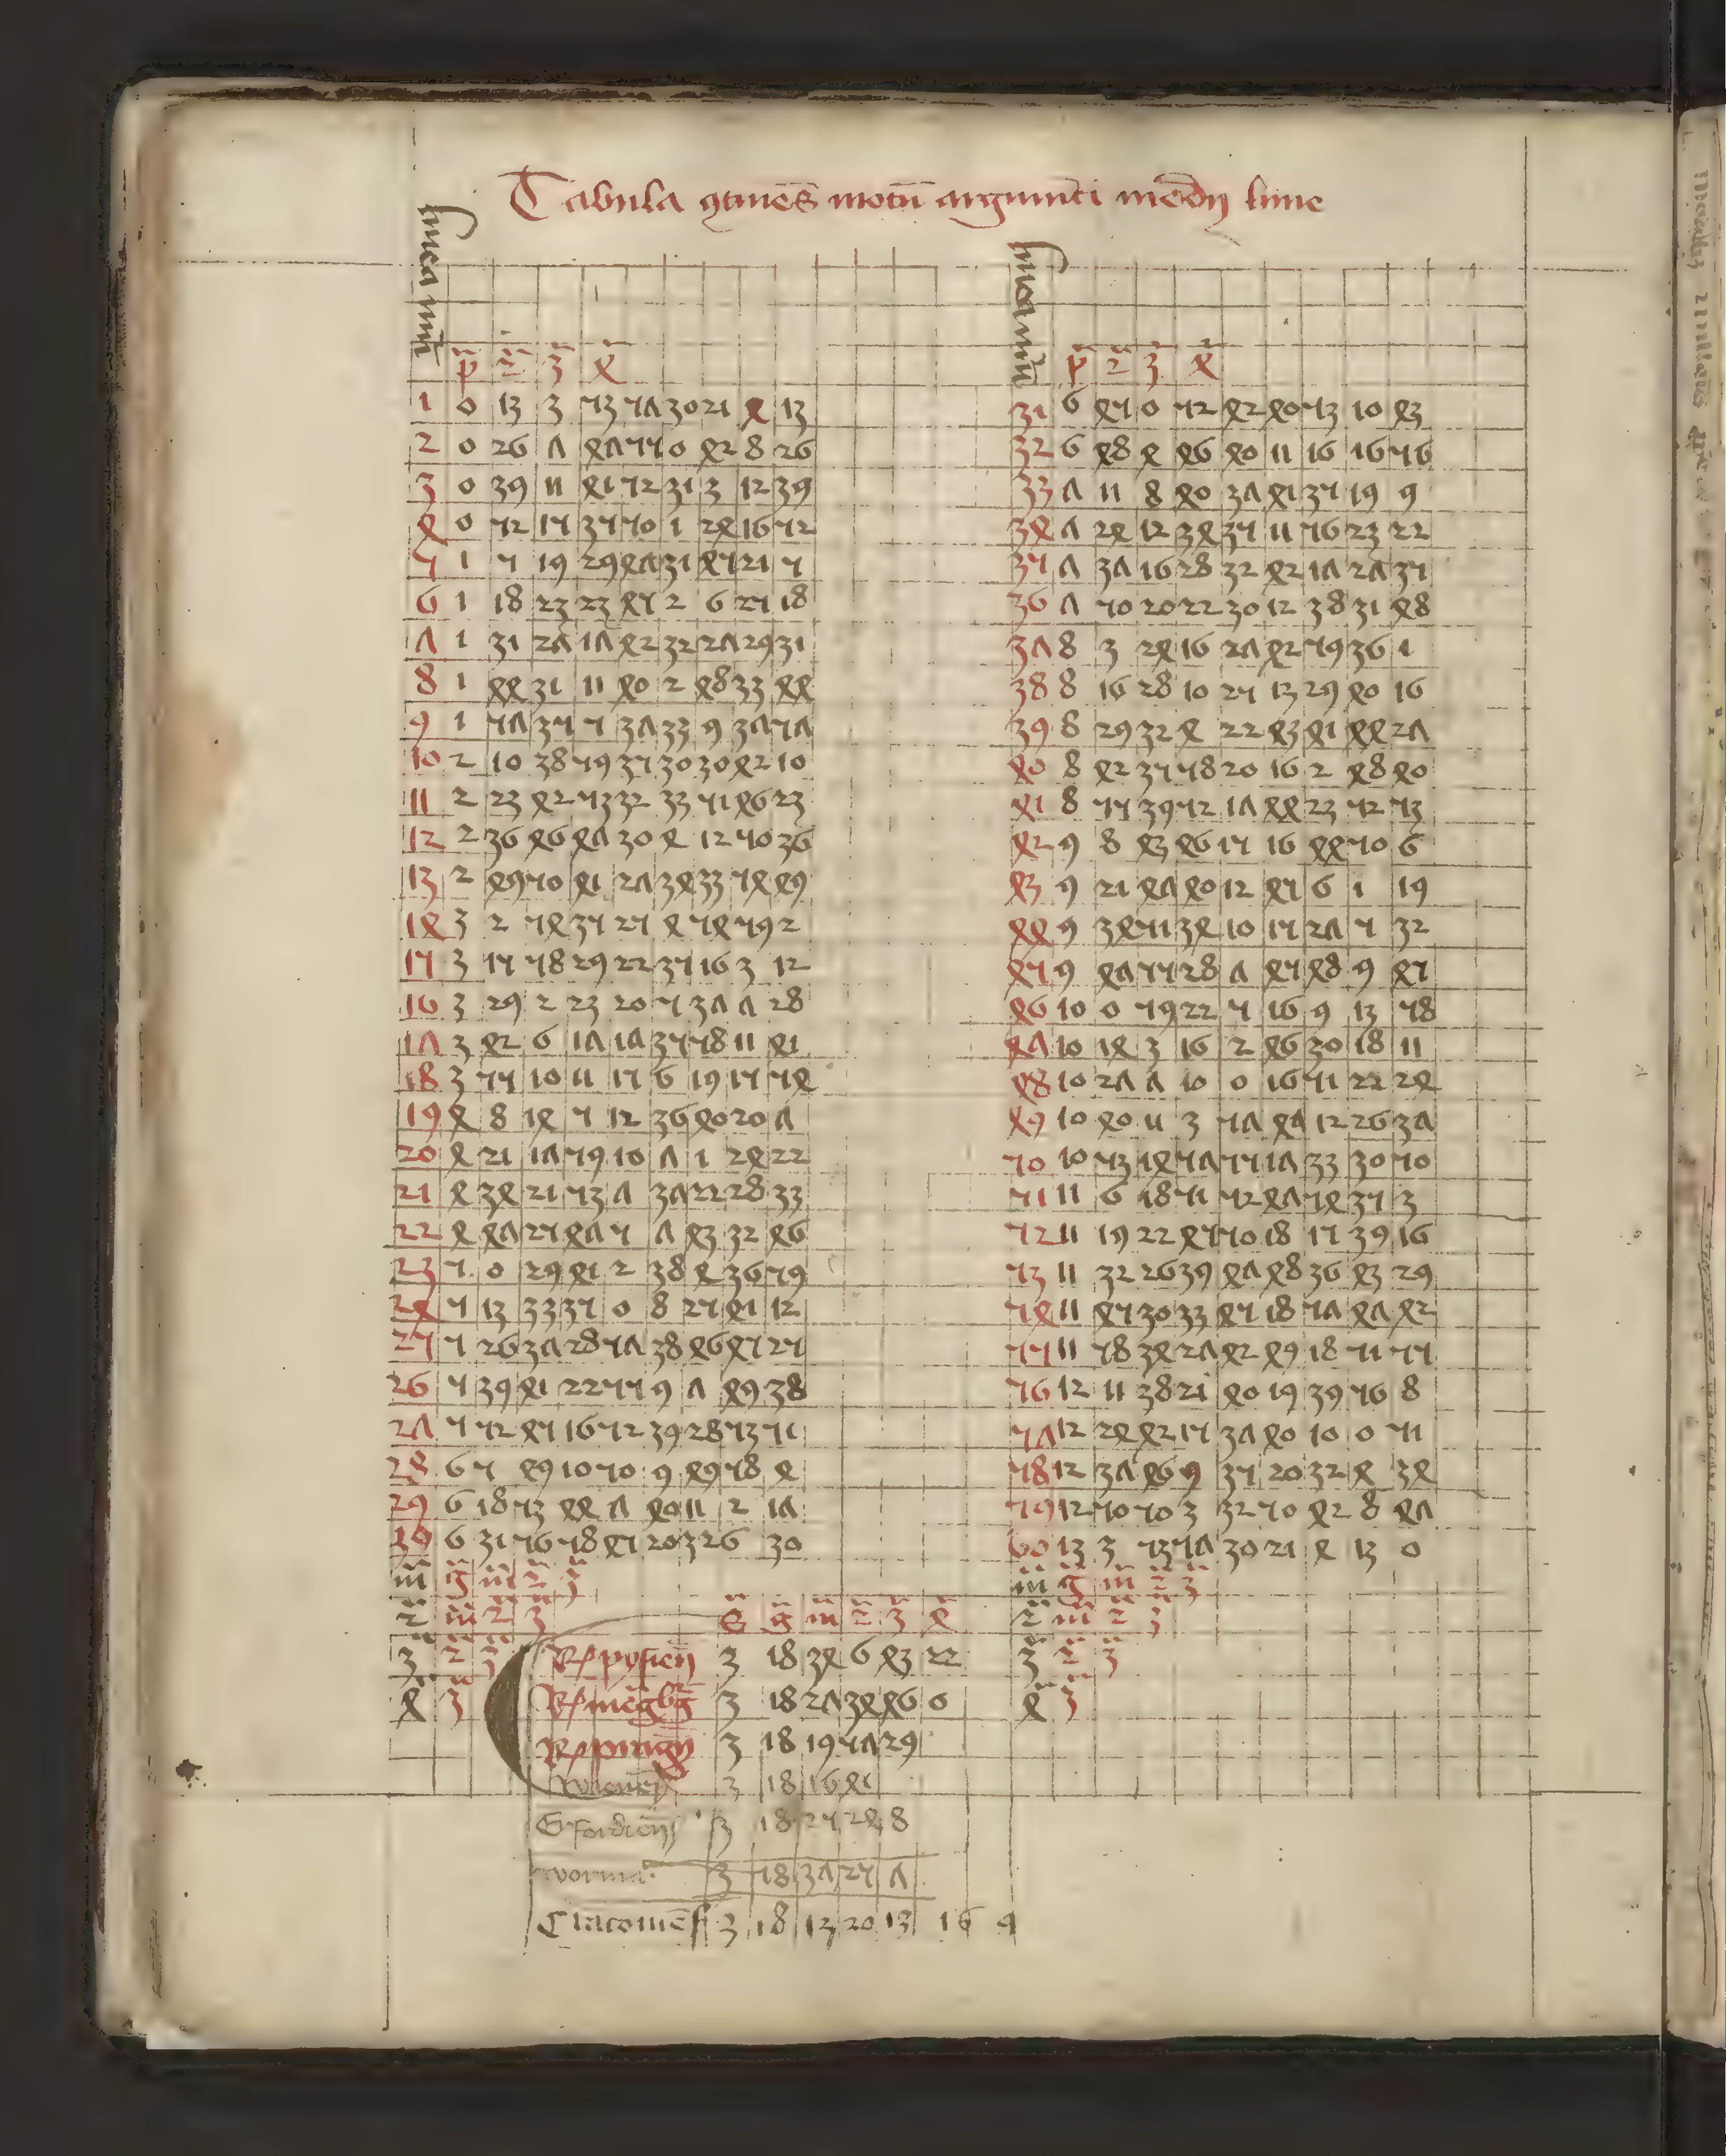 Tabula 9tinēs motū argumēti medij lune
linea nūi p̈ 2̈ 3̈ 4̈
1 0 13 3 53 57 30 21 4 13
2 0 26 7 47 55 0 42 8 26
3 0 39 11 41 52 31 3 12 39
4 0 52 15 35 50 1 24 16 52
5 1 5 19 29 47 31 45 21 5
6 1 18 23 23 45 2 6 25 18
7 1 31 27 17 42 32 27 29 31
8 1 44 31 11 40 2 48 33 44
9 1 57 35 5 37 33 9 37 57
10 2 10 38 59 35 30 30 42 10
11 2 23 42 53 32 33 51 46 23
12 2 36 46 47 30 4 12 50 36
13 2 49 50 41 27 34 33 54 49
14 3 2 54 35 25 4 54 59 2
15 3 15 58 29 22 35 16 3 12
16 3 29 2 23 20 5 37 7 28
17 3 42 6 17 17 35 58 11 41
18 3 55 10 11 15 6 19 15 54
19 4 8 14 5 12 36 40 20 7
20 4 21 17 59 10 7 1 24 22
21 4 34 21 53 7 37 22 28 33
22 4 47 25 47 5 7 43 32 46
23 5 0 29 41 2 38 4 36 59
24 5 13 33 35 0 8 25 41 12
25 5 26 37 28 57 38 46 45 25
26 5 39 41 22 55 9 7 49 38
27 5 52 45 16 52 39 28 53 51
28 6 5 49 10 50 9 49 58 4
29 6 18 53 44 7 40 11 2 17
30 6 31 56 58 45 20 32 6 30
m̈ g̈ m̈ 2̈ 3̈
2̈ m̈ 2̈ 3̈
3̈ 2̈ 3̈
4̈ 3̈
linea nūi p̈ 2̈ 3̈ 4̈
31 6 45 0 52 42 40 53 10 43
32 6 48 4 46 40 11 16 16 56
33 7 11 8 40 37 41 35 19 9
34 7 24 12 34 35 11 56 23 22
35 7 37 16 28 32 42 17 27 35
36 7 50 20 22 30 12 38 31 48
37 8 3 24 16 27 42 59 36 1
38 8 16 28 10 25 13 29 40 16
39 8 29 32 4 22 43 41 44 27
40 8 42 35 58 20 16 2 48 40
41 8 55 39 52 17 44 23 52 53
42 9 8 43 46 15 16 44 50 6
43 9 21 47 40 12 45 6 1 19
44 9 34 51 34 10 15 27 5 32
45 9 47 55 28 7 45 48 9 45
46 10 0 59 22 5 16 9 13 58
47 10 14 3 16 2 46 30 18 11
48 10 27 7 10 0 16 51 22 24
49 10 40 11 3 57 47 12 26 37
50 10 53 14 57 55 17 33 30 50
51 11 6 18 51 52 47 54 35 3
52 11 19 22 45 50 18 15 39 16
53 11 32 26 39 47 48 36 43 29
54 11 45 30 33 45 18 57 47 42
55 11 58 34 27 42 49 18 51 55
56 12 11 38 21 40 19 39 56 8
57 12 24 42 15 37 40 10 0 51
58 12 37 46 9 35 20 32 4 34
59 12 50 50 3 32 50 42 8 47
60 13 3 53 57 30 21 4 13 0
m̈ g̈ m̈ 2̈ 3̈
2̈ m̈ 2̈ 3̈
3̈ 2̈ 3̈
4̈ 3̈
S̈ g̈ m̈ 2̈ 3̈ 4̈
3 18 34 6 43 22
3 18 27 34 46 0
3 18 19 57 29
3 18 16 41
Erfordien̄ 3 18 25 24 8
worma. 3 18 37 25 7
Cracouiēs 3 18 13 20 13 16 9